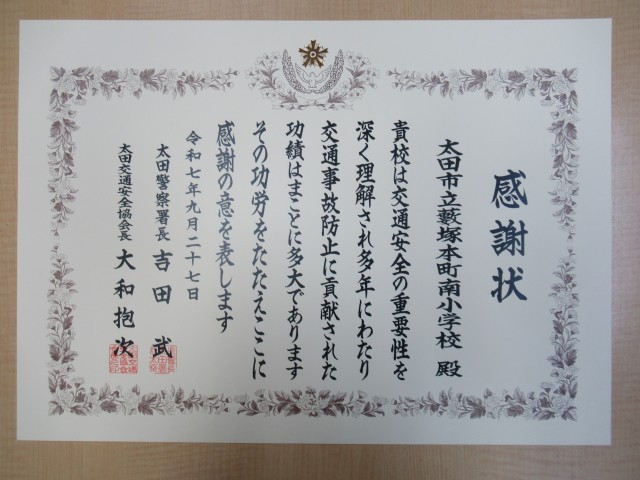 感謝状
太田市立藪塚本町南小学校 殿
貴校は交通安全の重要性を
深く理解され多年にわたり
交通事故防止に貢献された
功績はまことに多大であります
その功労をたたえここに
感謝の意を表します
令和七年九月二十七日
太田警察署長 吉田 武
太田交通安全協会長 大和抱次